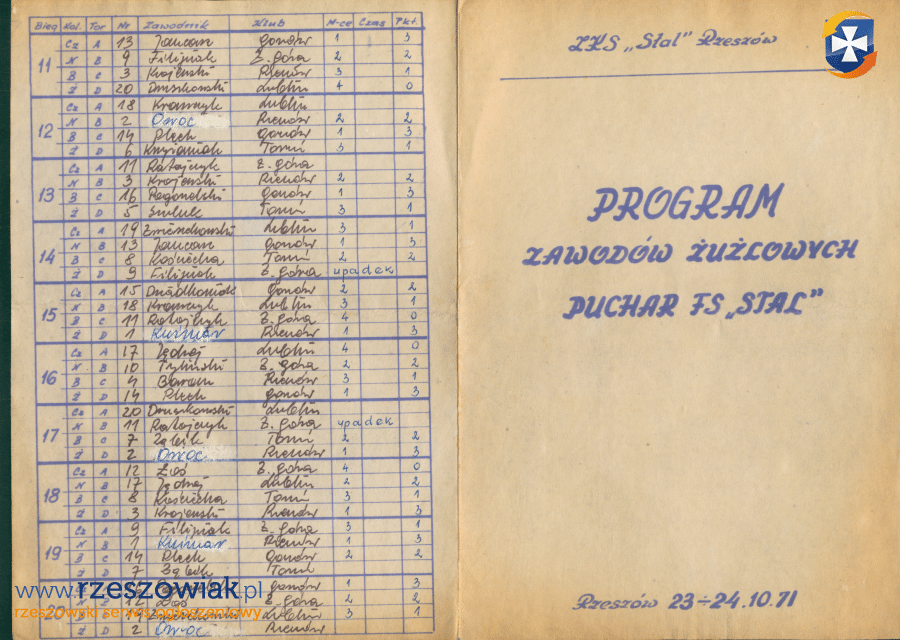 Bieg Kol. Tor Nr Zawodnik Klub M-ce Czas Pkt.
11
Cz A 13 Jancarz Gorzów 1 3
N B 9 Filipiak Z. Góra 2 2
B C 3 Krajewski Rzeszów 3 1
Ż D 20 Druszkowski Lublin 4 0
12
Cz A 18 Krawczyk Lublin
N B 2 Owoc Rzeszów 2 2
B C 14 Plech Gorzów 1 3
Ż D 6 Kniaziak Toruń 3 1
13
Cz A 11 Ratajczyk Z. Góra
N B 3 Krajewski Rzeszów 2 2
B C 16 Gorzów 1 3
Ż D 5 Toruń 3 1
14
Cz A 19 Lublin 3 1
N B 13 Jancarz Gorzów 1 3
B C 8 Kościecha Toruń 2 2
Ż D 9 Filipiak Z. Góra upadek
15
Cz A 15 Gorzów 2 2
N B 18 Krawczyk Lublin 3 1
B C 11 Ratajczyk Z. Góra 4 0
Ż D 1 Kuśniar Rzeszów 1 3
16
Cz A 17 Jędrej Lublin 4 0
N B 10 Z. Góra 2 2
B C 4 Baran Rzeszów 3 1
Ż D 14 Plech Gorzów 1 3
17
Cz A 20 Druszkowski Lublin
N B 11 Ratajczyk Z. Góra upadek
B C 7 Ząbik Toruń 2 2
Ż D 2 Owoc Rzeszów 1 3
18
Cz A 12 Łoś Z. Góra 4 0
N B 17 Jędrej Lublin 2 2
B C 8 Kościecha Toruń 3 1
Ż D 3 Krajewski Rzeszów 1 3
19
Cz A 9 Filipiak Z. Góra 3 1
N B 1 Kuśniar Rzeszów 1 3
B C 14 Plech Gorzów 2 2
Ż D 7 Ząbik Toruń
20
Gorzów 1 3
12 Łoś Z. Góra 2 2
19 Lublin 3 1
Ż D 2 Owoc Rzeszów
www.rzeszowiak.pl
rzeszowski serwis ogłoszeniowy
ZKS „Stal" Rzeszów
PROGRAM
ZAWODÓW ŻUŻLOWYCH
PUCHAR FS „STAL"
Rzeszów 23÷24.10.71